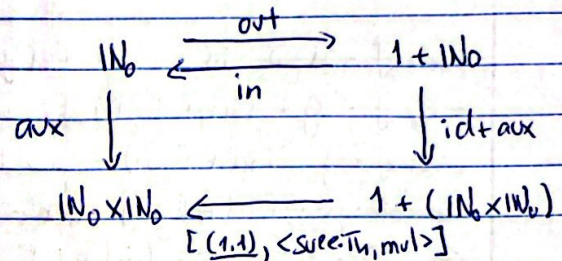 out
ℕ₀ 1 + ℕ₀
in
aux id + aux
ℕ₀ × ℕ₀ 1 + (ℕ₀ × ℕ₀)
[(1,1), <succ·π₁, mul>]